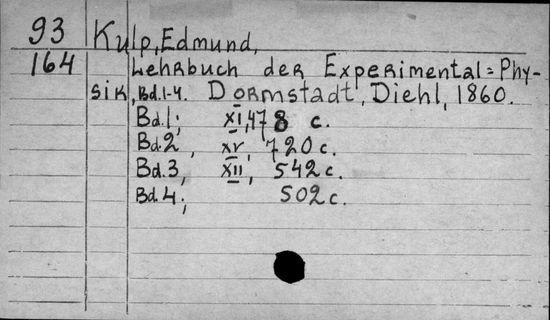 93 Kulp, Edmund,
164 Lehrbuch der Experimental=Phy-
sik, Bd.1-4. Dormstadt, Diehl, 1860.
Bd.1; XI, 478 c.
Bd.2, XV, 720 c.
Bd.3, XII, 542 c.
Bd.4; 502 c.